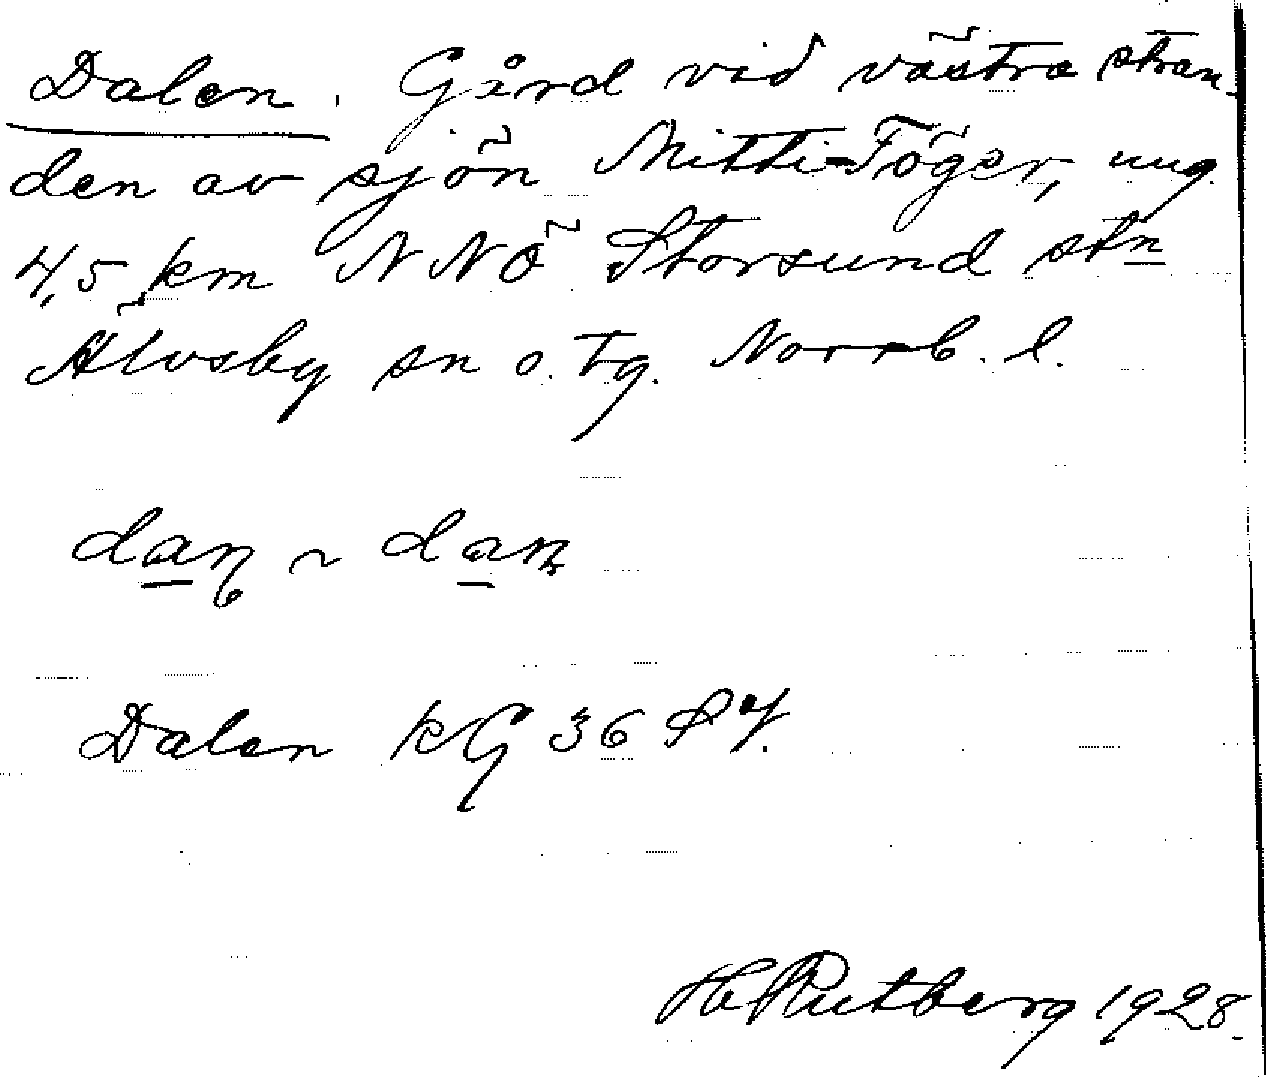 Dalen. Gård vid västra stran-
den av sjön Mitti-Töger, ung.
4,5 km NNÖ Storsund stn
Älvsby sn o. tg. Norrb. l.
daɳ ~ dan
Dalen kG 36
H Rutberg 1928.